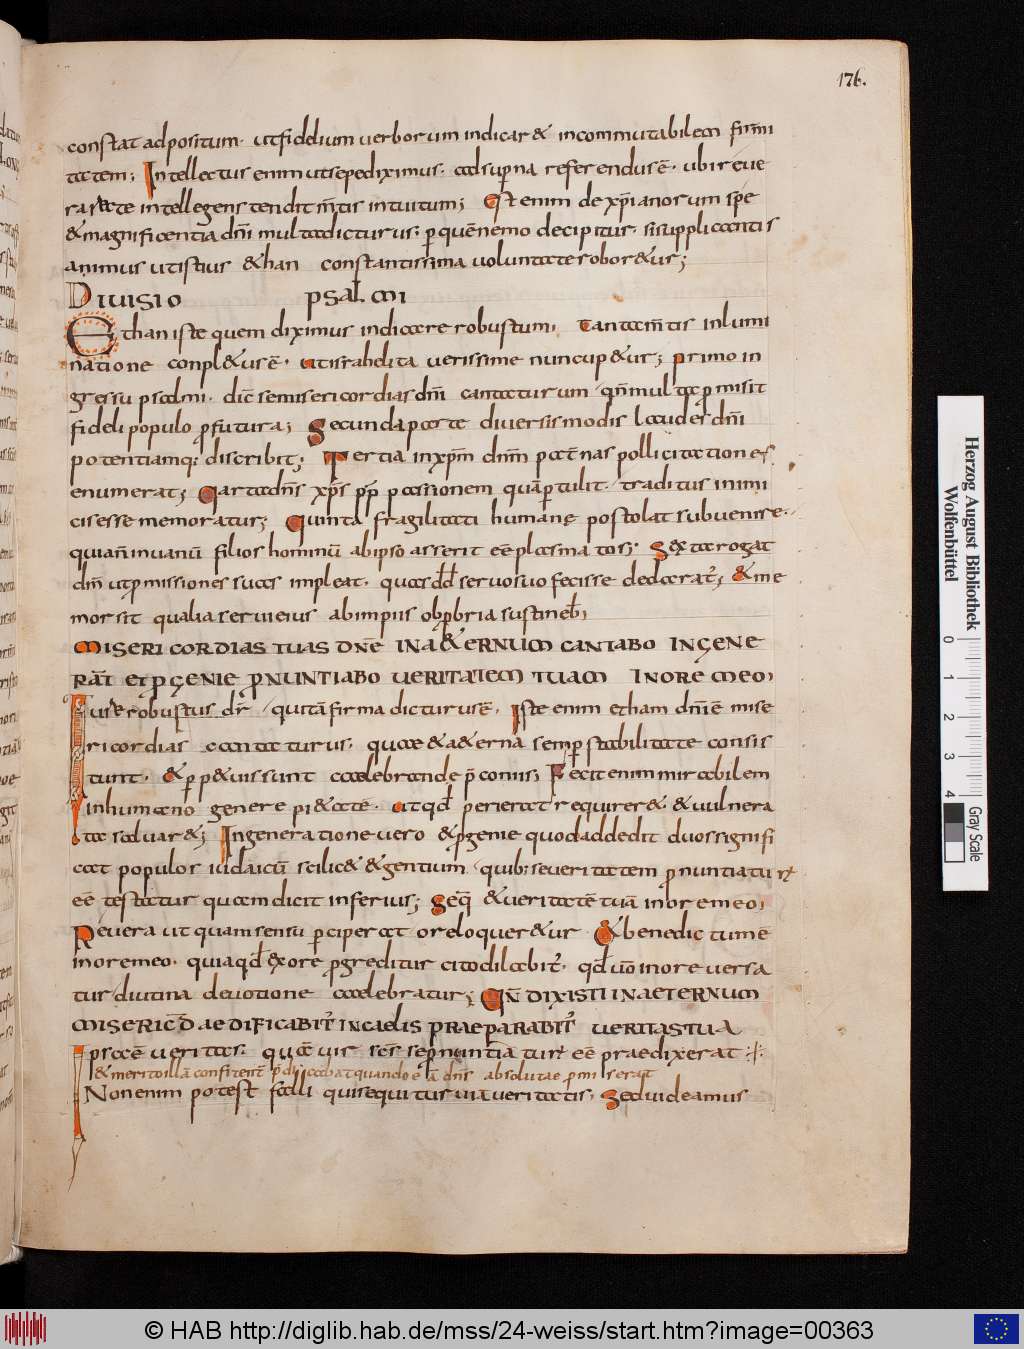 176.
constat ad positum. ut fidelium verborum indicar& incommutabilem firmi
tatem; Intellectus enim ut sepe diximus. ad sup̄na referendus ē. ubi reve
ra recte intellegens tendit m̄tis intuitum; Est enim de xp̄ianorum spe
& magnificentia dn̄i multa dicturus. p̄ quē nemo decipitur. si supplicantis
animus ut istius &han constantissima voluntate robor&ur;
Divisio psalmi
Ethan iste quem diximus indicare robustum, Tanta m̄tis inlumi
natione conpl&us ē. ut israhelita verissime nuncup&ur; Primo in
gressu psalmi. dic̄ se misericordias dn̄i cantaturum. qn̄ multa p̄misit
fideli populo p̄futura; Secunda parte diversis modis laudes dn̄i
potentiamq; discribit; Tertia in xp̄m dnm̄ paternas pollicitationes
enumerat; Quarta dn̄s xp̄s pp̄ passionem quā p̄tulit. traditus inimi
cis esse memoratur; Quinta fragilitati humanę postolat subvenire.
quia n̄ in vanū filios hominū ab ipso asserit eē plasmatos; Sexta rogat
dn̄m ut p̄missiones suas impleat. quas dd̄ servo suo fecisse declarat; & me
mor sit qualia servi eius ab impiis obp̄bria sustineb̄;
MISERICORDIAS TUAS DN̄E IN A&ERNUM CANTABO IN GENE
RAT̄ ET P̄GENIE P̄NUNTIABO VERITATEM TUAM IN ORE MEO;
Vir robustus dr̄ quia tā firma dicturus ē. Iste enim etham dn̄i ē mise
ricordias cantaturus. quae & a&erna semp̄ stabilitate consis
tunt. & p̄p&uis sunt caelebrande p̄coniis; Fecit enim mirabilem
in humano genere pi&atē. ut qd̄ perierat requirer&. & vulnera
ta salvar&; In generatione vero & p̄genie quod addedit duos signifi
cat populos iudaicū scilic& & gentium. quib; se veritatem p̄nuntiatur̄
eē testatur quam dicit inferius; Seq̄ & veritatē tuā in ore meo;
Revera ut quam sensu p̄ciperat ore loquer&ur & benedictum ē
in ore meo. quia qd̄ ex ore p̄greditur cito dilabit̄. qd̄ v̄o in ore versa
tur divina devotione caelebratur; QN̄ DIXISTI IN AETERNUM
MISERICD̄ AEDIFICABIT̄ IN CAELIS PRAEPARABIT̄ VERITAS TUA
Ipsa ē veritas. quā vir scs̄ se p̄nuntiaturū eē praedixerat
& merito illā confitent p̄dicabat quando ēā dn̄s absolutae p̄miserat
Non enim potest falli qui sequitur viā veritatis; Sed videamus
Herzog August Bibliothek
Wolfenbüttel
0 1 2 3 4
Gray Scale
© HAB http://diglib.hab.de/mss/24-weiss/start.htm?image=00363